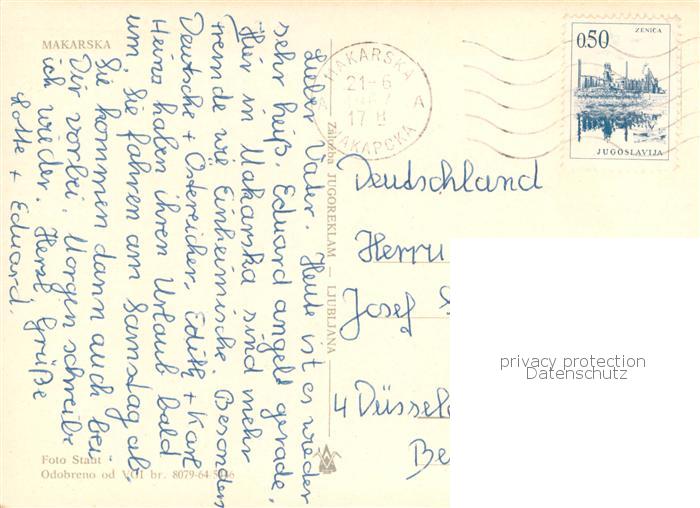 MAKARSKA
Lieber Vater. Heute ist es wieder
sehr heiß. Eduard angelt gerade,
Hier in Makarska sind mehr
Fremde wie Einheimische. Besonders
Deutsche + Östereicher. Edith + Karl
Heins haben ihren Urlaub bald
um, Sie fahren am Samstag ab,
Sie kommen dann auch bei
Dir vorbei. Morgen schreibe
ich wieder. Herzl Grüße
Lotte + Eduard.
Foto Staut
Odobreno od VOI br. 8079-64/5046
JUGOREKLAM — LJUBLJANA
MAKARSKA
21-6
17
A
МАКАРСКА
ZENICA
0.50
JUGOSLAVIJA
Deutschland
Herrn
Josef
4 Düssel
Be
privacy protection
Datenschutz